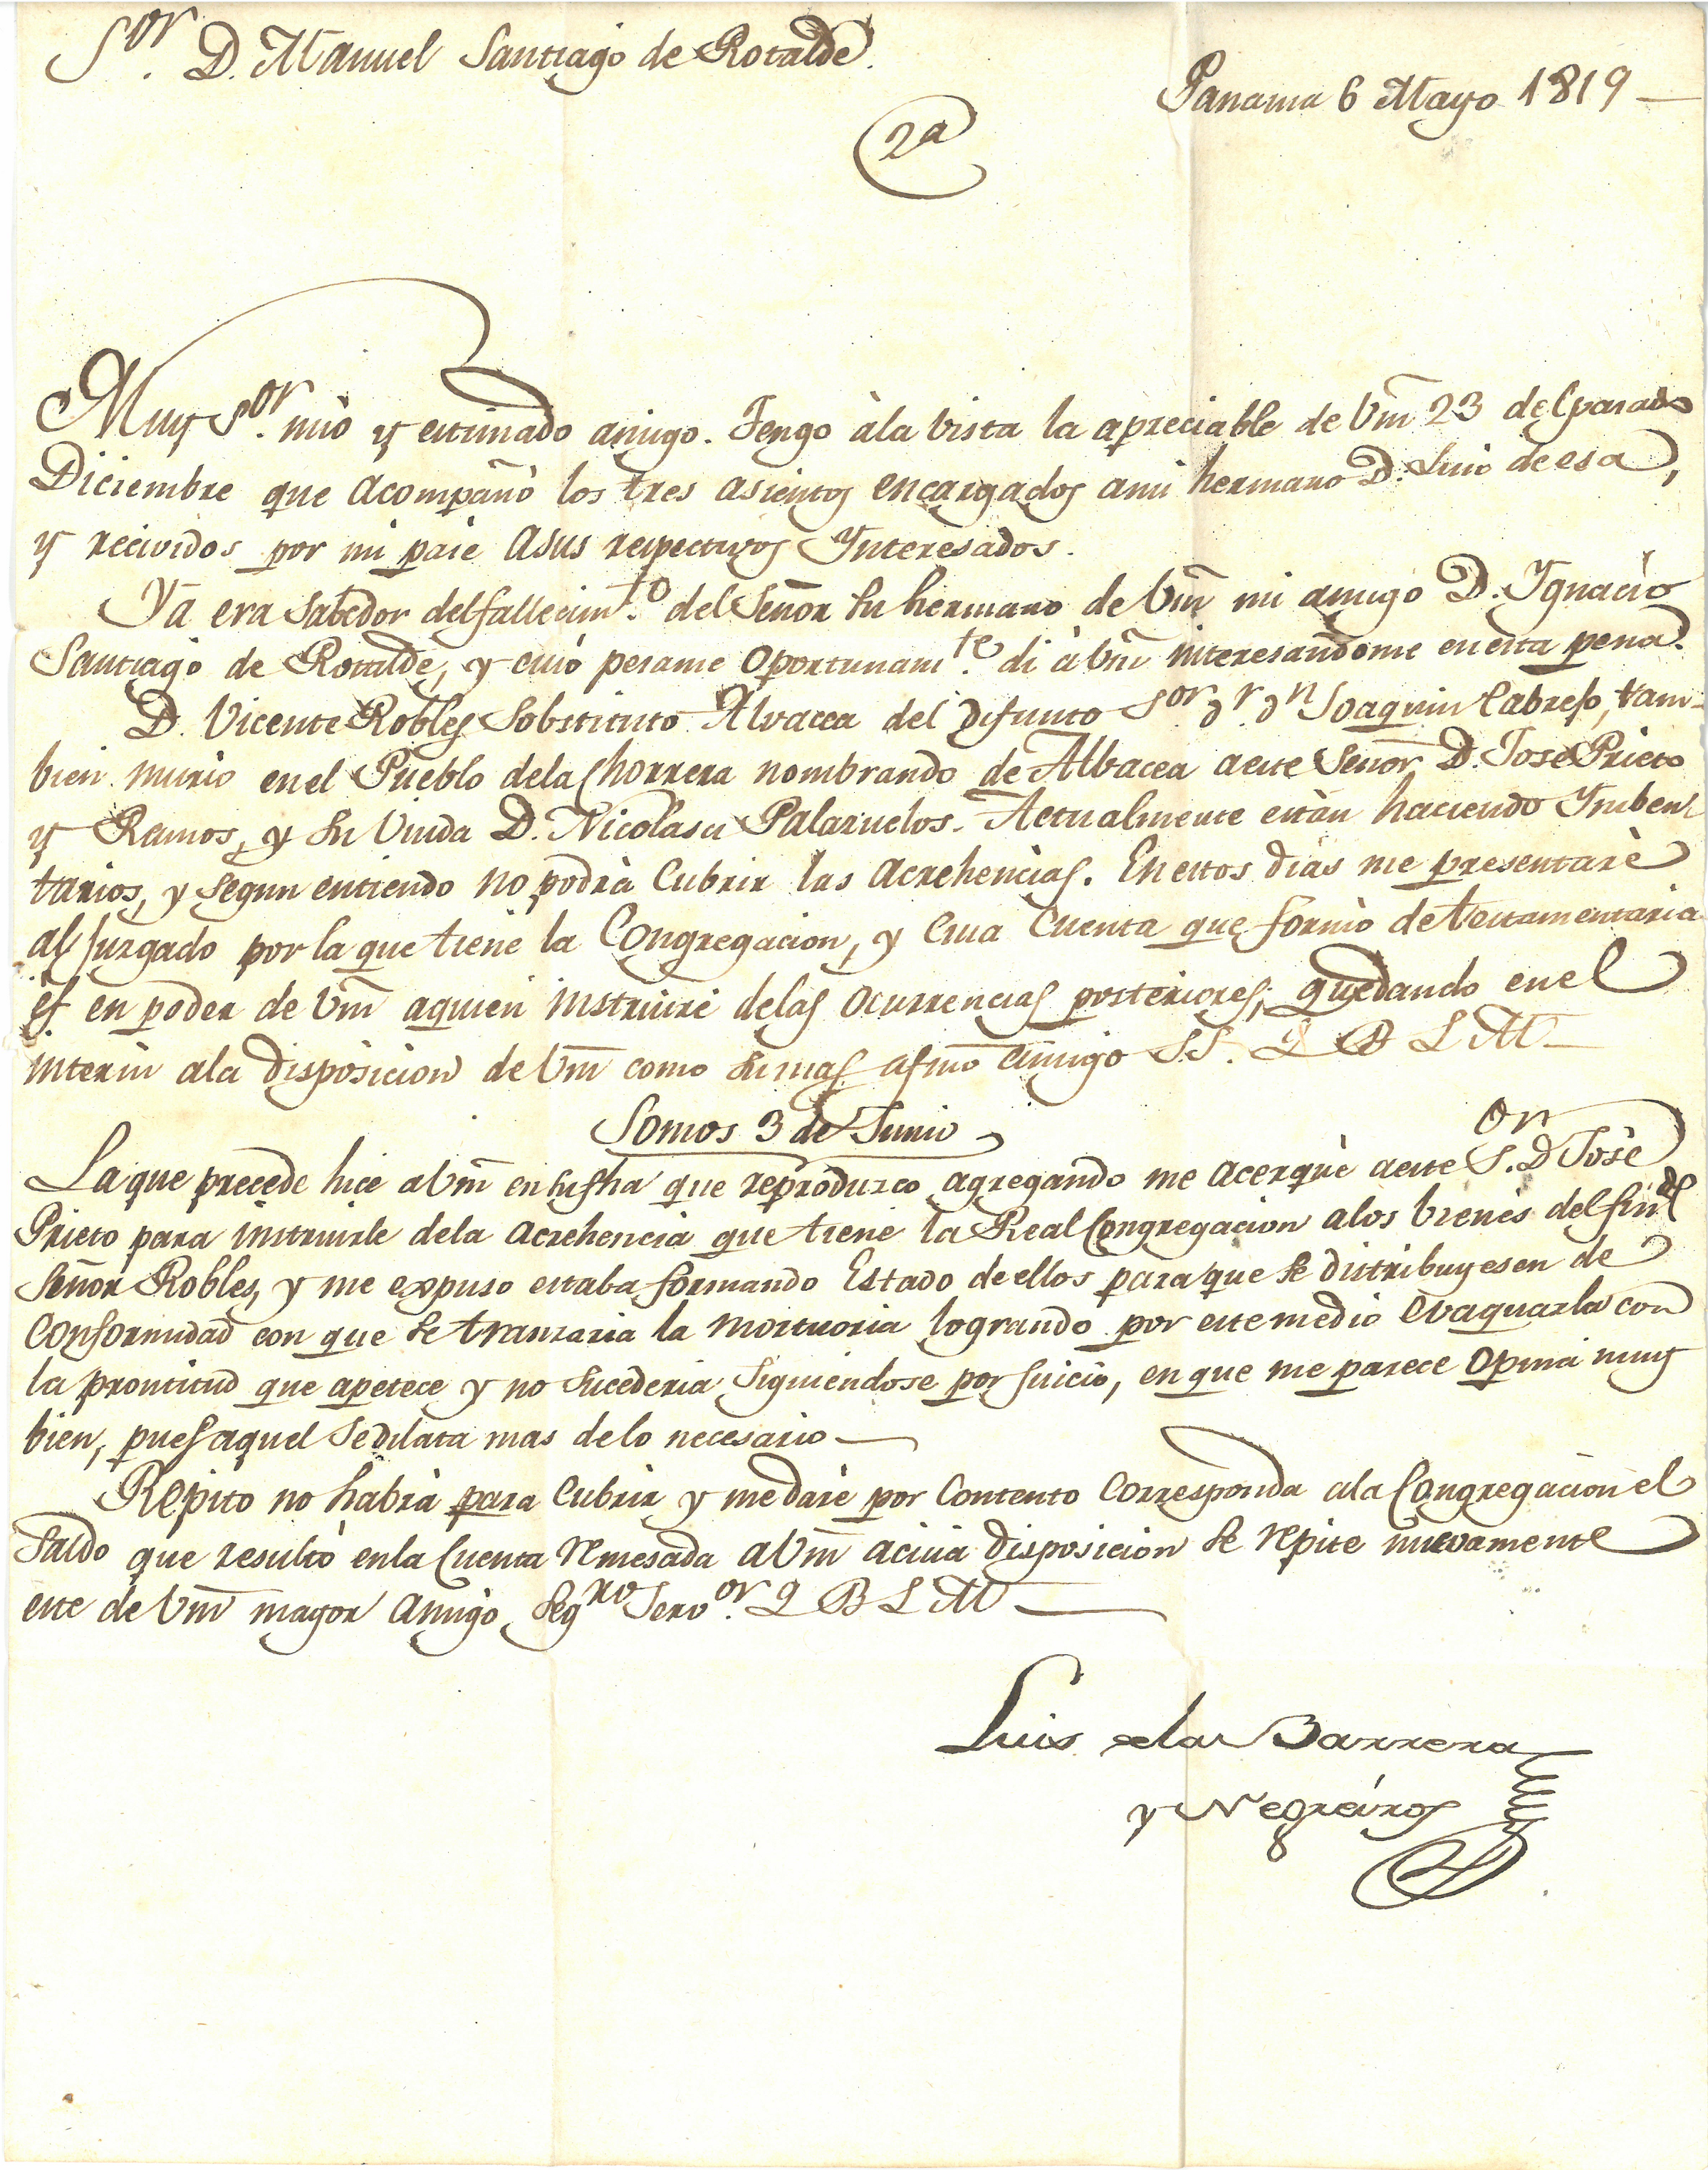 Sor. D. Manuel Santiago de Rotalde.
Panama 6 Mayo 1819
2a
Muy Sor. mio y estimado amigo. Tengo à la vista la apreciable de Vm 23 del pasado
Diciembre que acompañò los tres asientos encargados a mi hermano D. Luis de esa,
y recividos por mi pase a sus respectivos Ynteresados.
Ya era sabedor del fallecimto. del Señor su hermano de Vm mi amigo D. Ygnacio
Santiago de Rotalde, y cuio pesame oportunamte. di à Vm interesandome en esta pena.
D. Vicente Robles Sobstituto Alvacea del difunto Sor Dr. Dn Joaquin Cabrejo, tam-
bien murio en el Pueblo de la Chorrera nombrando de Albacea a este Señor D. Jose Prieto
y Ramos, y su Viuda D. Nicolasa Palazuelos. Actualmente estàn haciendo Ynben-
tarios, y segun entiendo no podrà Cubrir las Acrehencias. En estos dias me presentarè
al Juzgado por la que tiene la Congregacion, y cuia Cuenta que formò de testamentaria
es en poder de Vm a quien instruire de las ocurrencias posteriores; quedando en el
interin a la disposicion de Vm como su mas afmo amigo S.S. Q B L M
Somos 3 de Junio
La que precede hice a Vm en su fha que reproduzco agregando me acerquè a este Sor. D Josè
Prieto para instruirle de la Acrehencia que tiene la Real Congregacion a los bienes del findo
Señor Robles, y me expuso estaba formando Estado de ellos para que se distribuyesen de
Conformidad con que se tranzaria la mortuoria logrando por este medio evaquarla con
la prontitud que apetece y no sucederia siguiendose por Juicio, en que me parece opina muy
bien, pues aquel se dilata mas de lo necesario
Repito no habrà para Cubrir y me darè por Contento Corresponda a la Congregacion el
Saldo que resultò en la Cuenta remesada a Vm a cuia disposicion se repite nuevamente
este de Vm mayor Amigo Segro Servor. Q B L M
Luis de la Barrera
y Negreiros